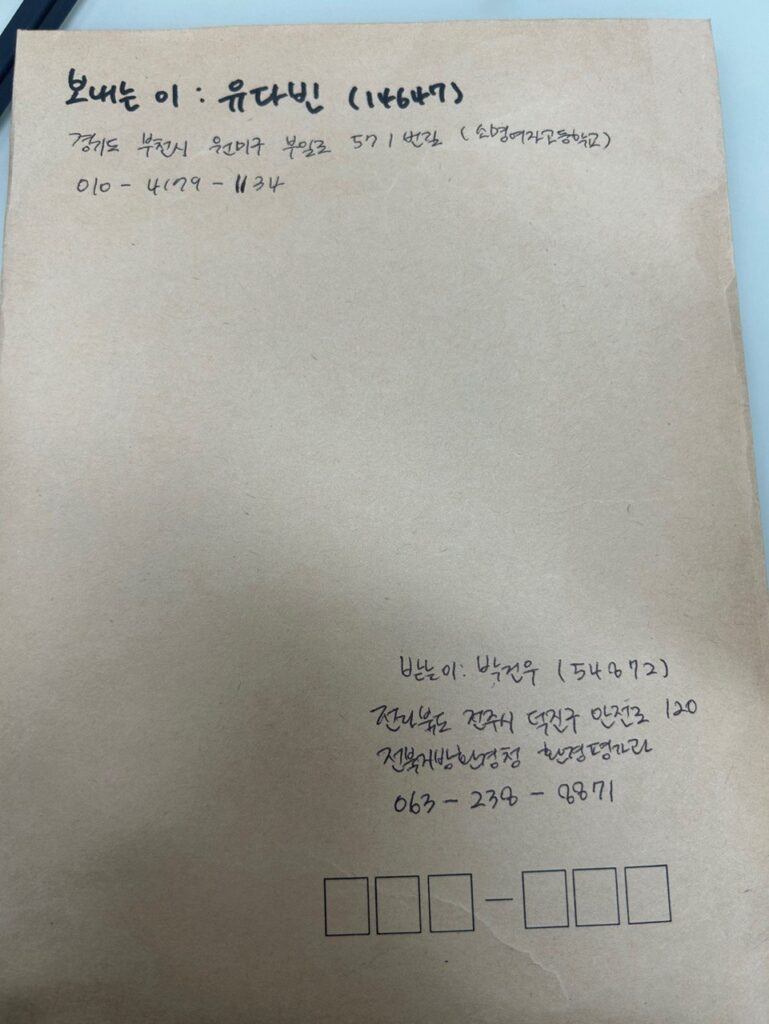 보내는 이 : 유다빈 (14647)
경기도 부천시 원미구 부일로 571번길 (소명여자고등학교)
010 - 4179 - 1134
받는이 : 박건우 (54872)
전라북도 전주시 덕진구 안전로 120
전북지방환경청 환경평가과
063 - 238 - 8871